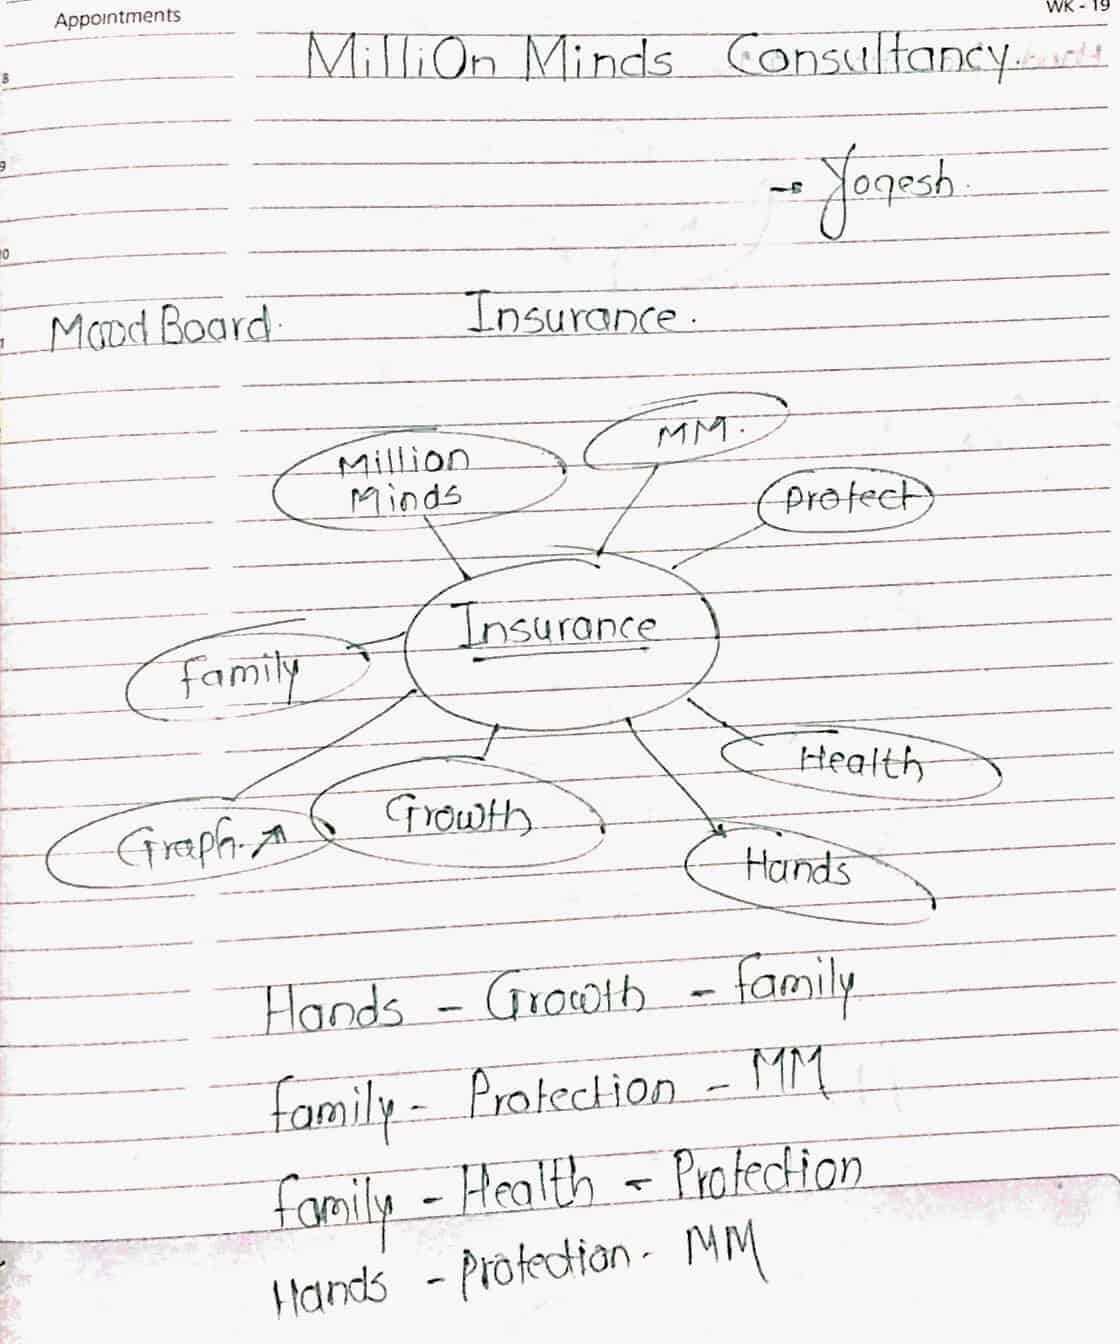 Appointments
WK - 19
MilliOn Minds Consultancy.
8
9
10
→ Yogesh.
Mood Board.
Insurance.
Million
Minds
MM.
Protect
Insurance
family
Health
Graph. ↗
Growth
Hands
Hands - Growth - family
family - Protection - MM
family - Health - Protection
Hands - Protection - MM